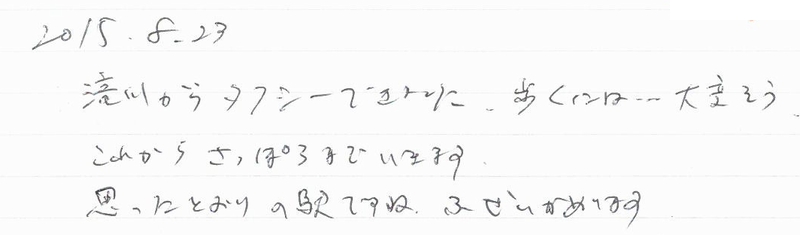 2015.8.23
滝川からタクシーできました. 歩くには…大変そう
これから さっぽろまでいきます.
思ったとおりの駅ですね. ふぜいがあります